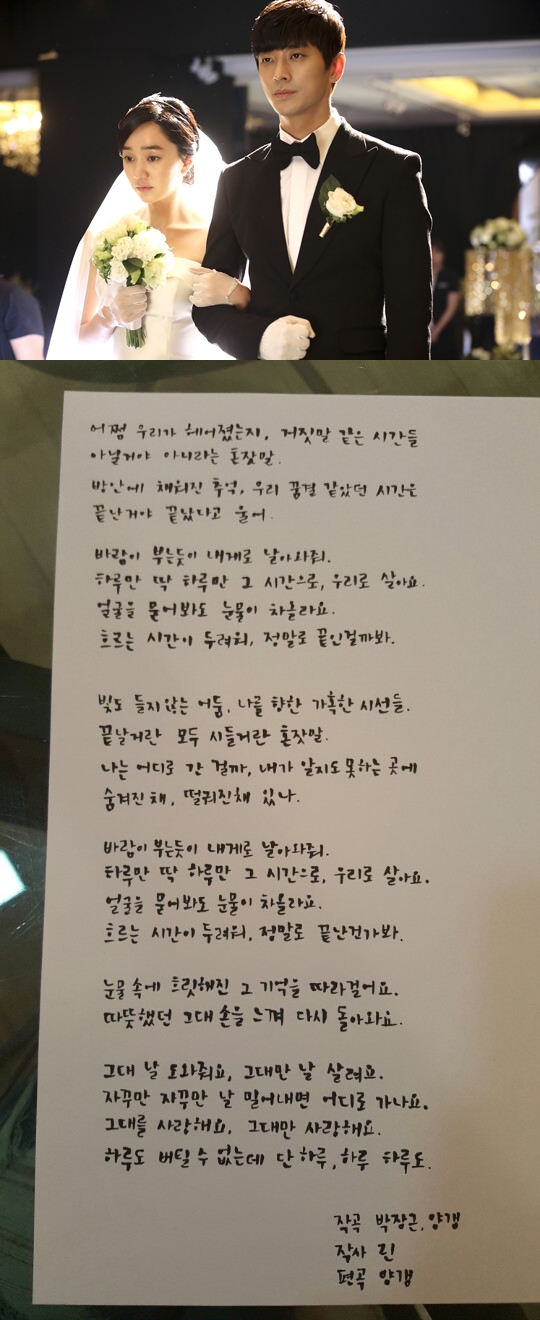 어쩜 우리가 헤어졌는지, 거짓말 같은 시간들
아닐거야 아니라는 혼잣말.
방안에 채워진 추억, 우리 꿈결 같았던 시간은
끝난거야 끝났다고 울어.
바람이 부는듯이 내게로 날아와줘.
하루만 딱 하루만 그 시간으로, 우리로 살아요.
얼굴을 묻어봐도 눈물이 차올라요.
흐르는 시간이 두려워, 정말로 끝인걸까봐.
빛도 들지않는 어둠, 나를 향한 가혹한 시선들.
끝날거란 모두 시들거란 혼잣말.
나는 어디로 간 걸까, 내가 알지도 못하는 곳에
숨겨진 채, 떨궈진채 있나.
바람이 부는듯이 내게로 날아와줘.
하루만 딱 하루만 그 시간으로, 우리로 살아요.
얼굴을 묻어봐도 눈물이 차올라요.
흐르는 시간이 두려워, 정말로 끝난건가봐.
눈물 속에 흐릿해진 그 기억을 따라걸어요.
따뜻했던 그대 손을 느껴 다시 돌아와요.
그대 날 도와줘요, 그대만 날 살려요.
자꾸만 자꾸만 날 밀어내면 어디로 가나요.
그대를 사랑해요, 그대만 사랑해요.
하루도 버틸 수 없는데 단 하루, 하루 하루도.
작곡 박장근, 양갱
작사 린
편곡 양갱